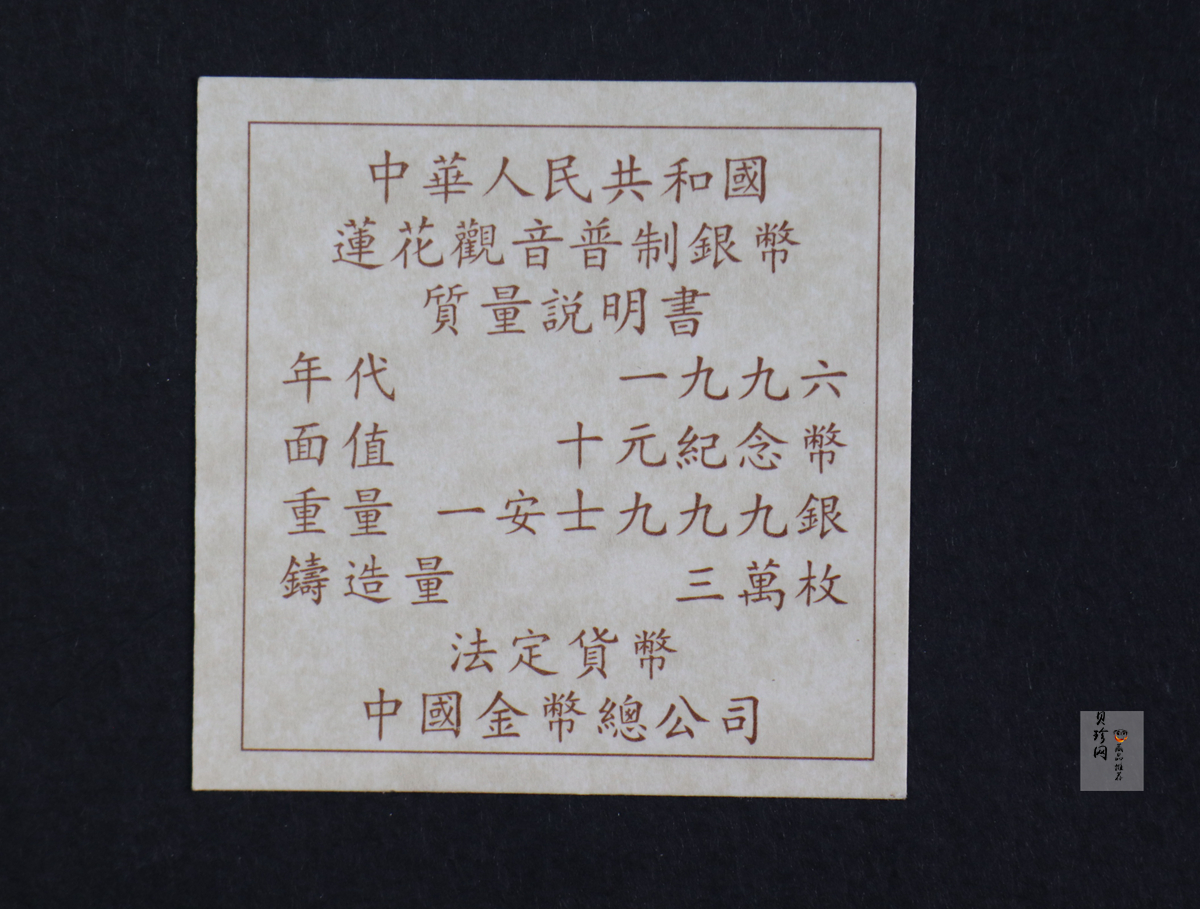 中華人民共和國
蓮花觀音普制銀幣
質量説明書
年代 一九九六
面值 十元紀念幣
重量 一安士九九九銀
鑄造量 三萬枚
法定貨幣
中國金幣總公司
贝珍网
藏品推荐